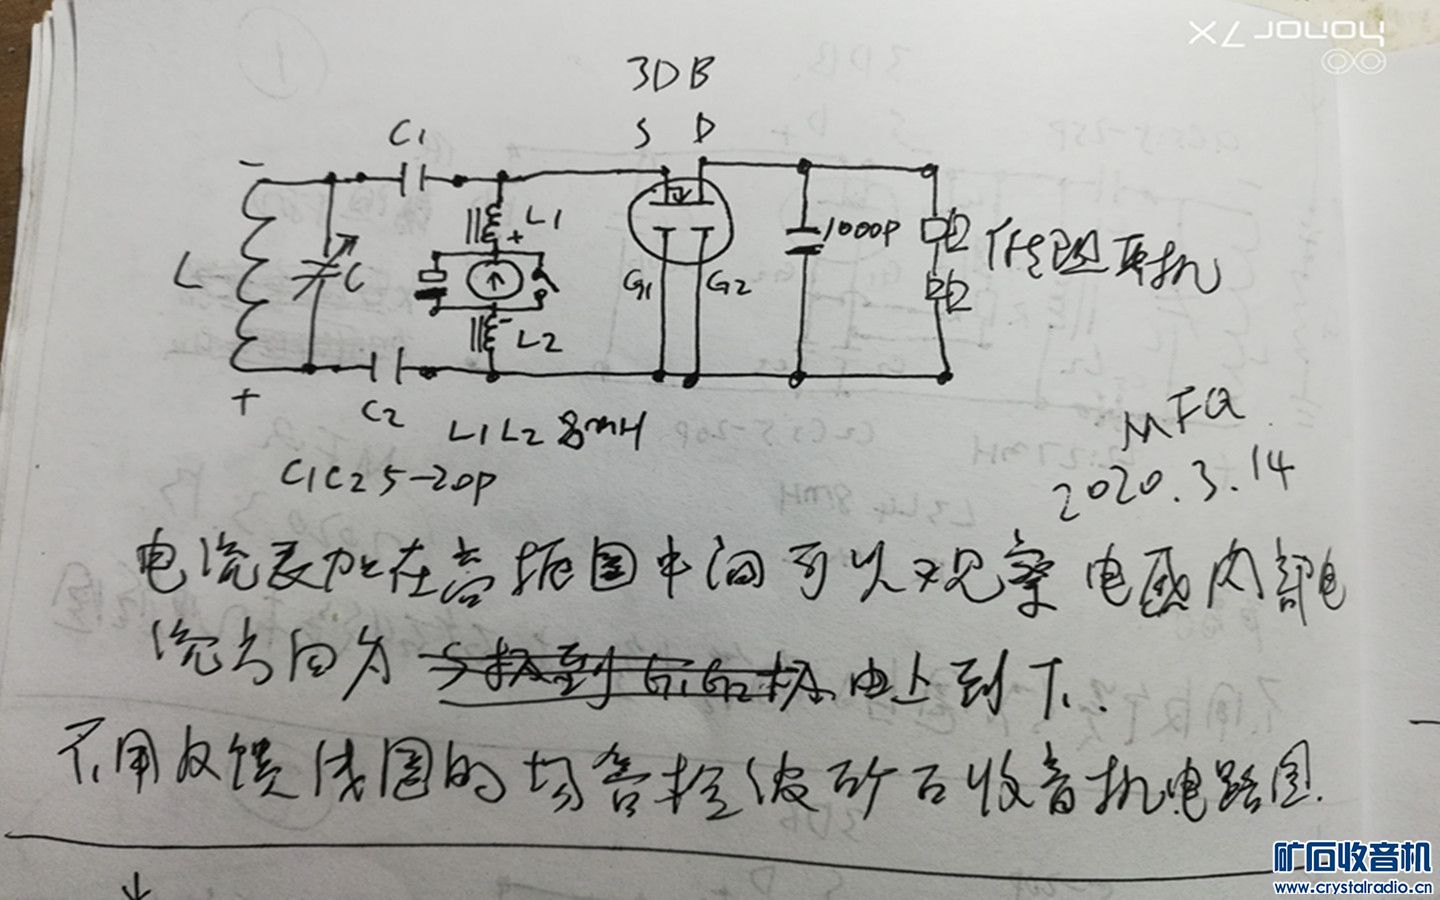 honor 7X
3DB
C1
S D
-
L1
+
L
C
G1 G2
1000P
低阻耳机
-
L2
+
C2
L1 L2 8mH
C1C2 5-20P
MFQ
2020.3.14
电流表加在高扼圈中间可以观察电感内部电
流方向为 S极到G1G2极 由上到下.
不用反馈线圈的场管检波矿石收音机电路图.
矿石收音机
www.crystalradio.cn